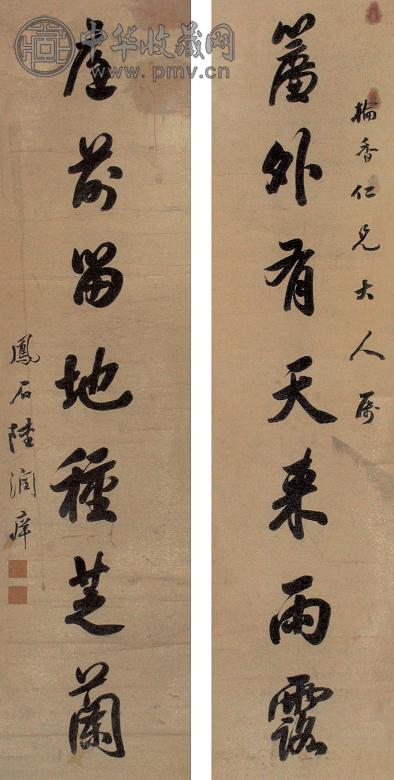 中华收藏网
www.pmv.cn
掄香仁兄大人属
簷外有天来雨露
庭前留地種芝蘭
鳳石陸潤庠